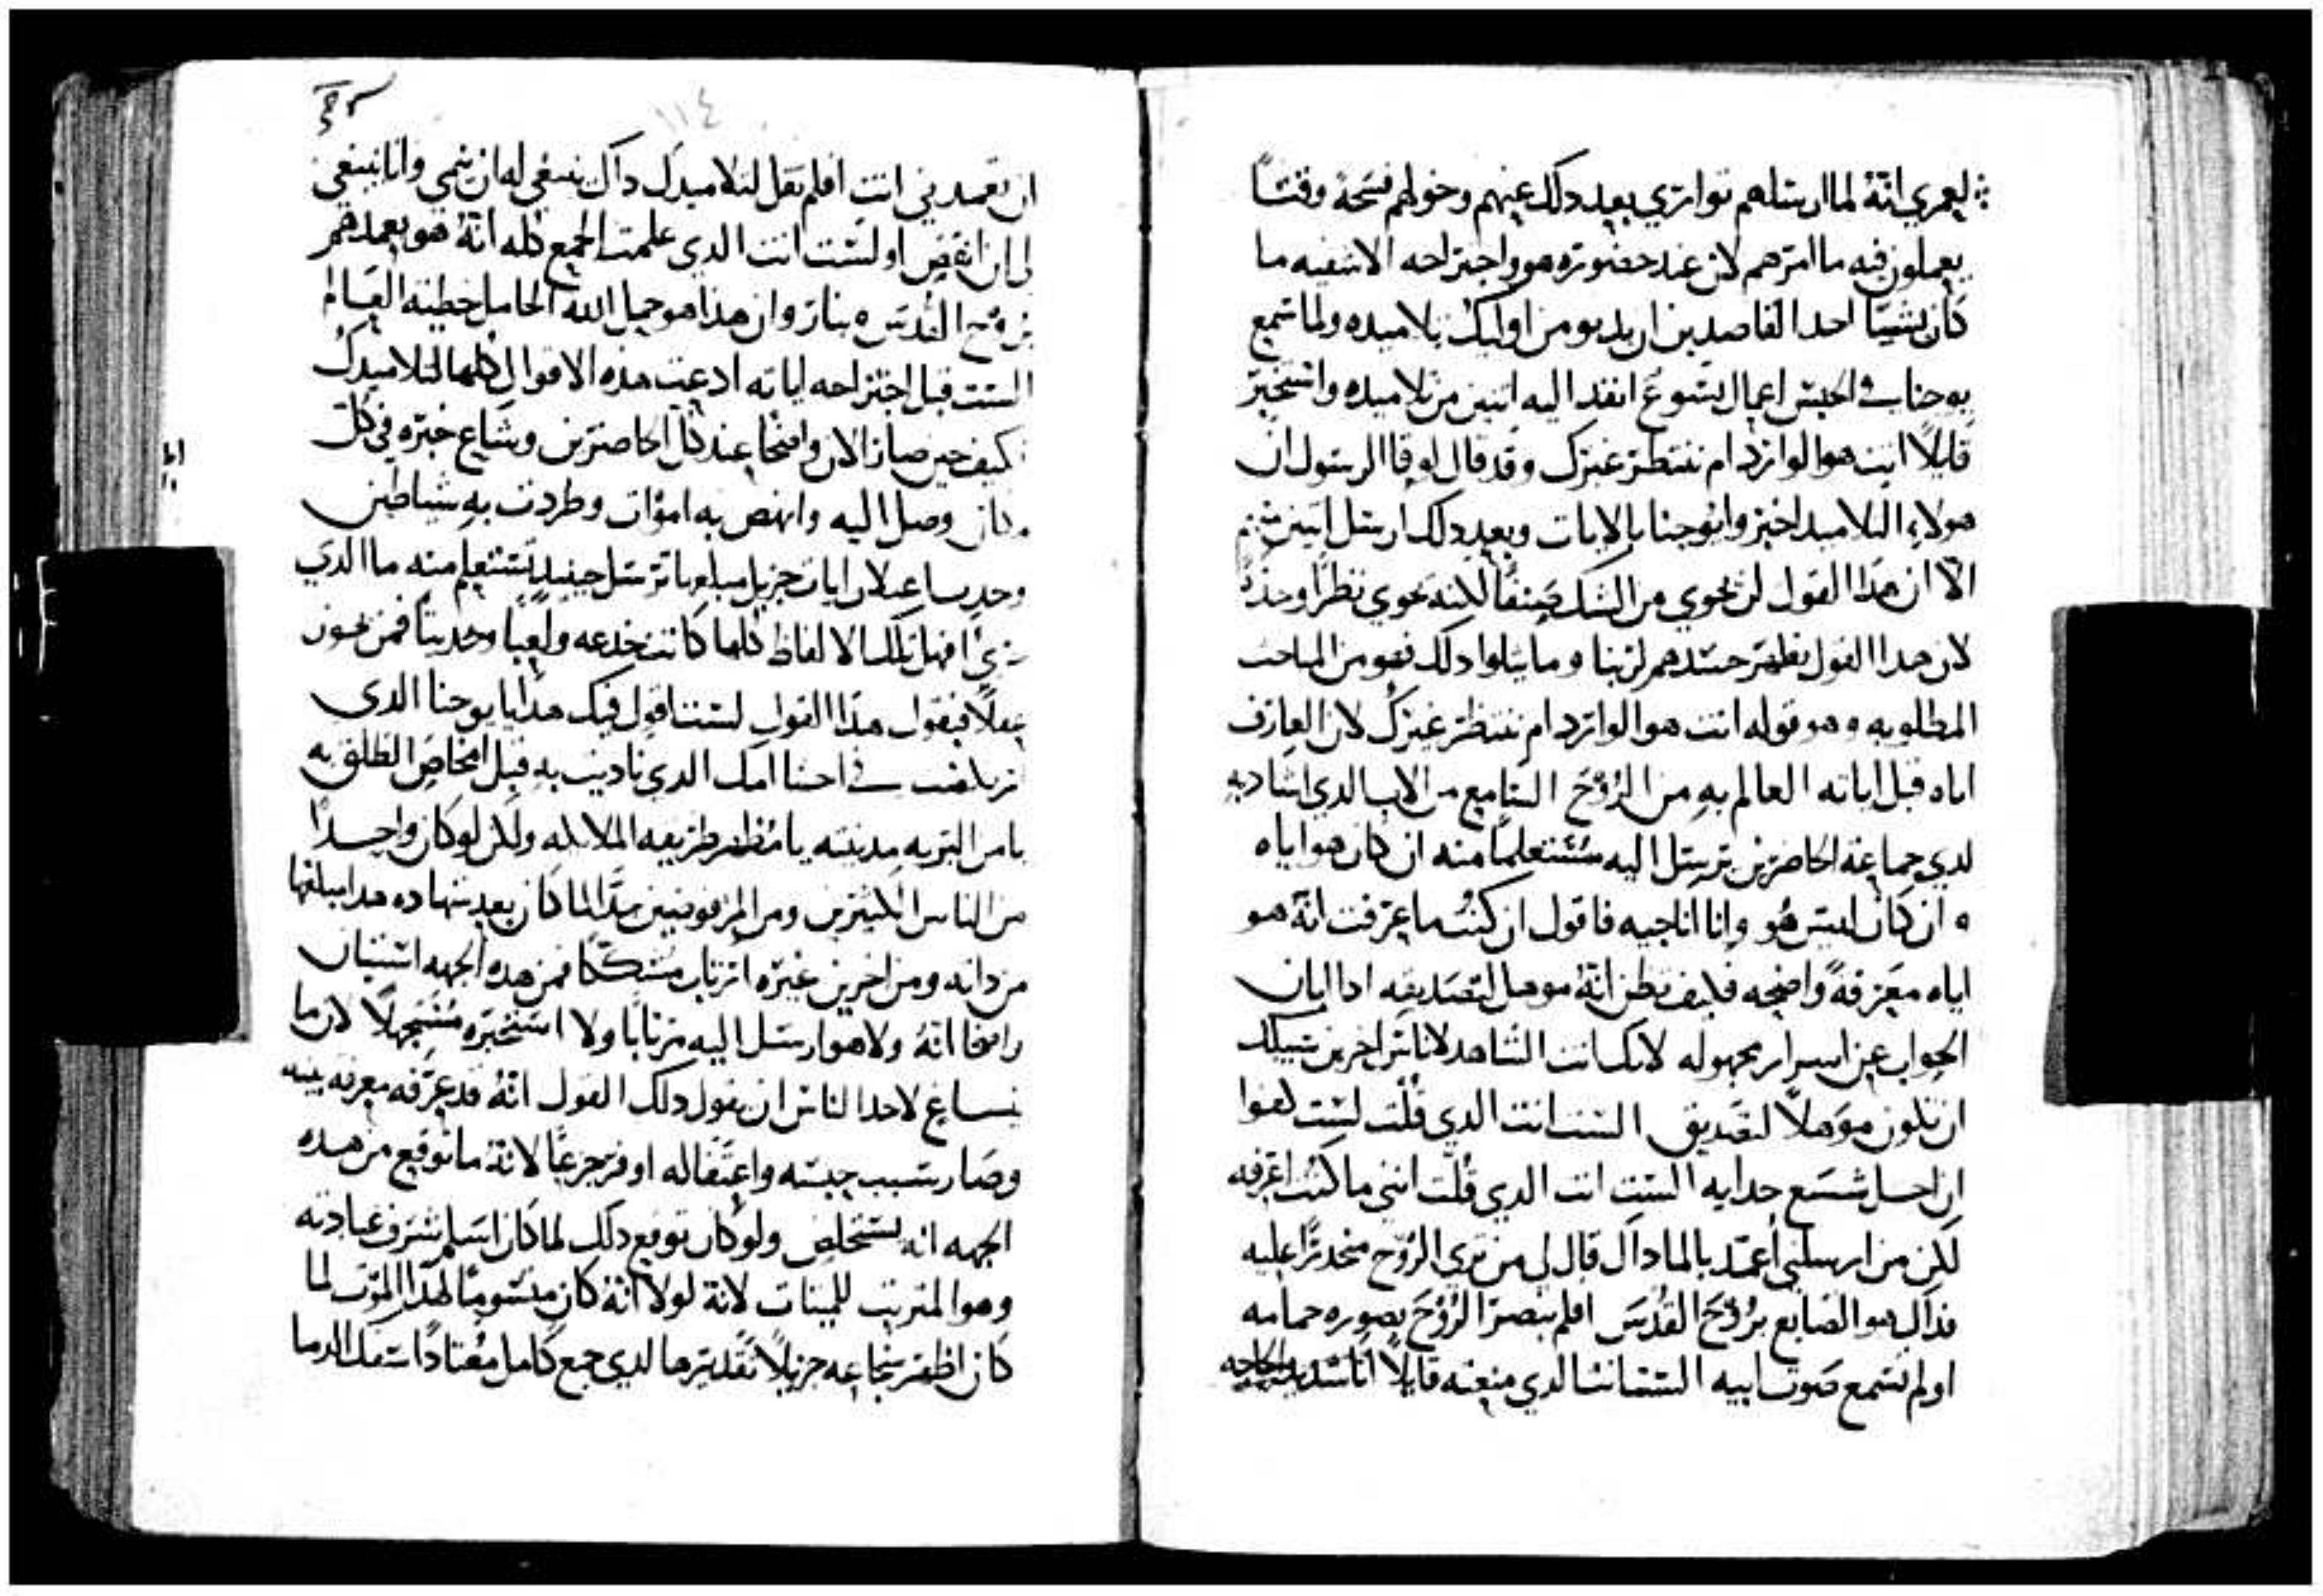 لعمري انهُ لما ارسلهم توارى بعد ذلك عنهم وخولهم فسحة وقتًا
يعملون فيه ما امرهم لان عند حضوره هو واجتراحه الاشفيه ما
كان يشيا احد القاصدين ان يدنو من اوليك تلاميده ولما سمع
يوحنا في الحبس اعمال يسوع انفد اليه اتنين من تلاميده واستخبر
قايلًا انت هو الوارد ام ننتظر غيرك وقد قال لوقا الرسول ان
هولاء التلاميد اخبروا يوحنا بالايات وبعد دلك ارسل اتنين
الا ان هدا القول لن يحوي من الشك صنفًا لكنه يحوي نظرًا وحده
لان هدا القول يظهر حسدهم لربنا وما يتلوا دلك فهو من المباحث
المطلوبه وهو قوله انت هو الوارد ام ننتظر غيرك لان العارف
اياه قبل اياته العالم به من الرُوُحَ السامع من الاب الدي اشاد به
لدي جماعة الحاضرين يرسل اليه مستعلمًا منه ان كان هو اياه
ان كان ليس هو وانا اناجيه فاقول ان كنتُ ما عرفت انهُ هو
اياه معرفةً واضحه فكيف تظن انهُ موهل لتصديقه ادا ابان
الجواب عن اسرار مجهوله لانك انت الشاهد لاناس اخرين سبيلك
ان تكون موهلًا لتصديق الست انت الدي قُلت لست كفوا
ان احل شسع حدايه الست انت الدي قُلت انني ما كنت اعرفه
لكن من ارسلني أعمد بالما داك قال لي من تري الروح منحدرًا عليه
فداك هو الصابغ برُوُحَ القُدسَ افلم تبصر الرُوُحَ بصوره حمامه
اولم تسمع صوت ابيه الست انت الدي منعته قايلًا انا شديد الحاجه
١١٤
ان تعمدني انت افلم تقل لتلاميدك داك ينبغي له ان ينمي وانا ينبغي
لي ان انقص او لست انت الدي علمت الجمع كله انهُ هو يعمدهم
بروُح القُدسَ وبنار وان هدا هو حمل الله الحامل خطية العالم
الست قبل اجتراحه اياته ادعيت هده الاقوال كلها لتلاميدك
كيف حين صار الان واضحًا عند كل الحاضرين وشاع خبره في كل
مكان وصل اليه وانهض به امواتٍ وطردت به شياطين
وحدتنا عدلان ايات جزيل مبلغها ترسل حينيد تستعلم منه ما الدي
افهل تلك الالفاظ كلها كانت خدعه ولعبًا وحديثًا فمن يحوز
عقلًا فيقول هدا القول لست اقول فيك هدا يا يوحنا الدي
ارتكضت في احشا امك الدي ناديت به قبل امخاض الطلق به
يا من البريه مدينته يا مُظهر طريقه الملايكه ولكن لو كان واحدًا
من الناس الكثيرين ومن المرفوضين جدًّا لما كان بعد شهاده هدا مبلغها
من داته ومن اخرين غيره ارتاب مشككًا فمن هده الجهه استبان
واضحًا انهُ ولا هو ارسل اليه مرتابًا ولا استخبره مستجهلًا لان ما
يساغ لاحد الناس ان يقول دلك القول انهُ قد عرفه معرفه بينه
وصار بسبب حبسه واعتقاله اوفر جزعًا لانهُ ما توقع من هده
الجهه انه يستخلص ولو كان توقع دلك لما كان اسلم شرف عبادته
وهو المترتب للميتات لانهُ لولا انهُ كان مستوسًا لهدا الموت لما
كان اظهر شجاعه جزيلًا تقديرها لدي جمع كامل معتادًا سفك الدما